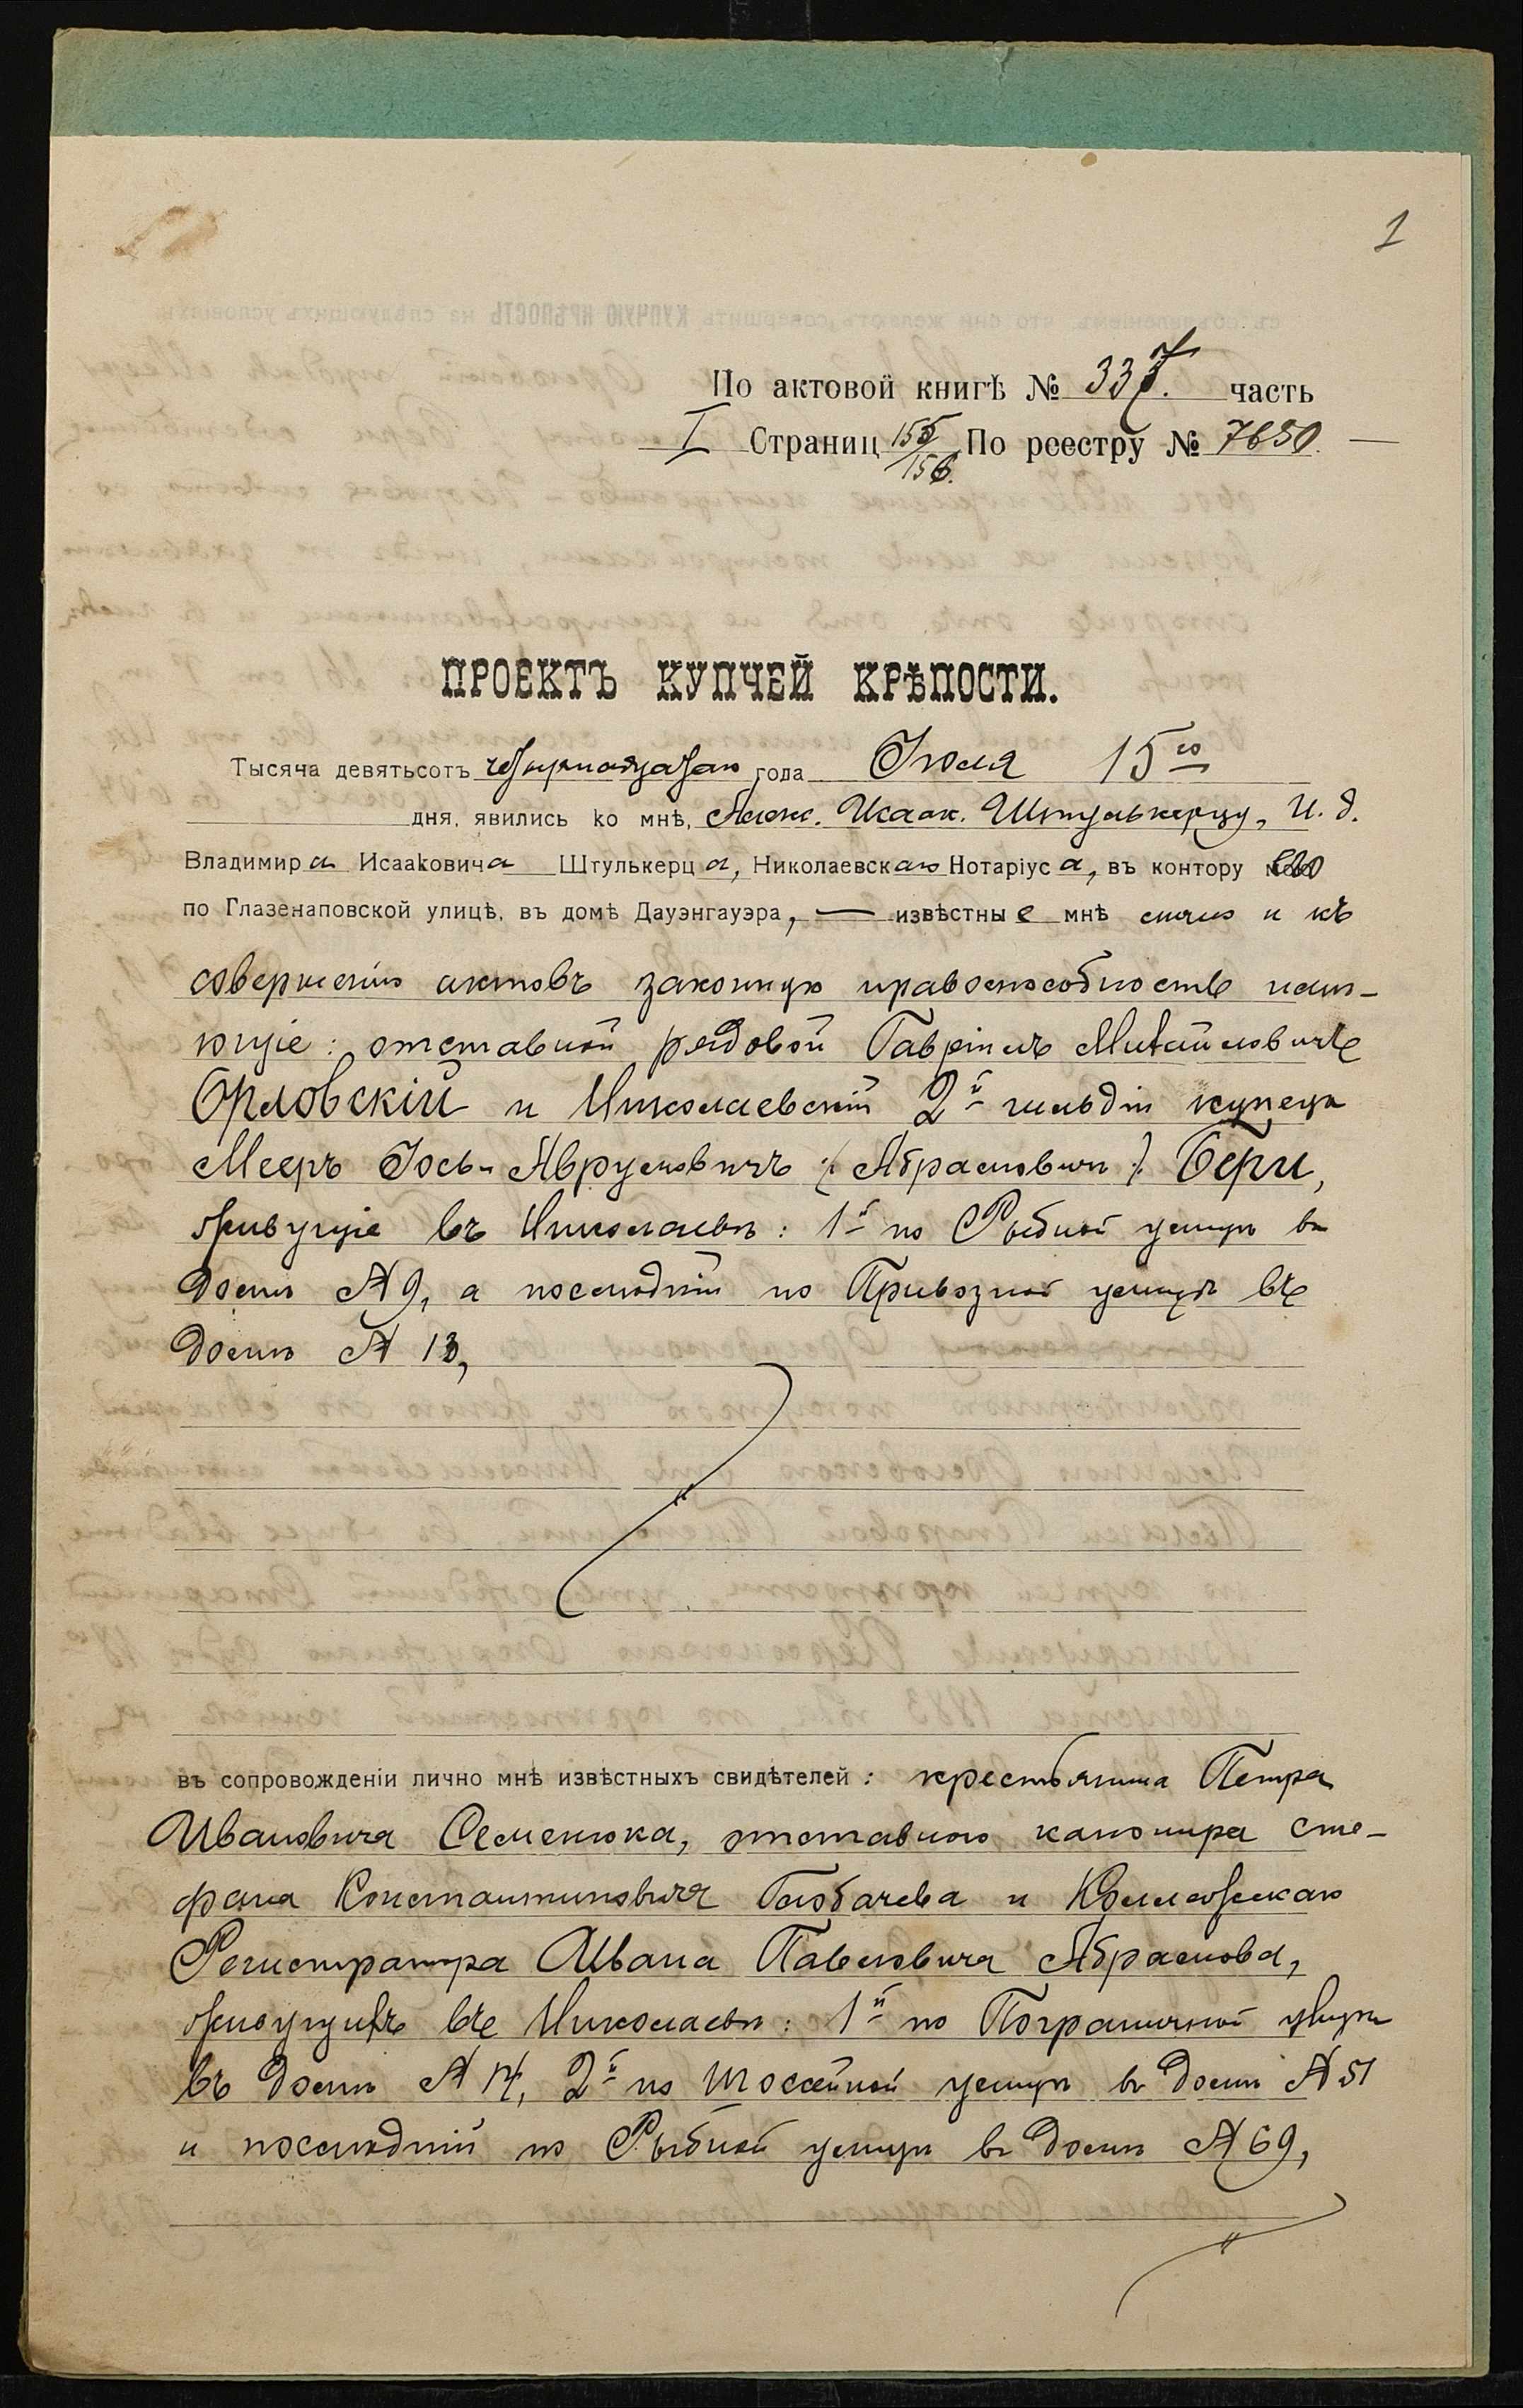 1
По актовой книгѣ № 337. часть
I Страниц 155/156. По реестру № 7650.
ПРОЕКТЪ КУПЧЕЙ КРѢПОСТИ.
Тысяча девятьсотъ четырнадцатаго года Іюля 15го
дня, явились ко мнѣ, Алекс. Исаак. Штулькерцу, И. д.
Владимира Исааковича Штулькерца, Николаевскаго Нотаріуса, въ контору его
по Глазенаповской улицѣ, въ домѣ Дауэнгауэра, — извѣстные мнѣ лично и къ
совершенію актовъ законную правоспособность имѣ-
ющіе: отставной рядовой Гавріилъ Михайловичъ
Орловскій и Николаевскій 2й гильдіи купецъ
Мееръ Іось-Аврумовичъ (Абрамовичъ) Бери,
живущіе въ Николаевѣ: 1й по Рыбной улицѣ въ
домѣ № 9, а послѣдній по Привозной улицѣ въ
домѣ № 13,
въ сопровожденіи лично мнѣ извѣстныхъ свидѣтелей: крестьянина Петра
Ивановича Семенюка, отставного канонира Сте-
фана Константиновича Горбачева и Коллежскаго
Регистратора Ивана Павловича Абрамова,
живущихъ въ Николаевѣ: 1й по Пограничной улицѣ
въ домѣ № 14, 2й по Шоссейной улицѣ въ домѣ № 51
и послѣдній по Рыбной улицѣ въ домѣ № 69,